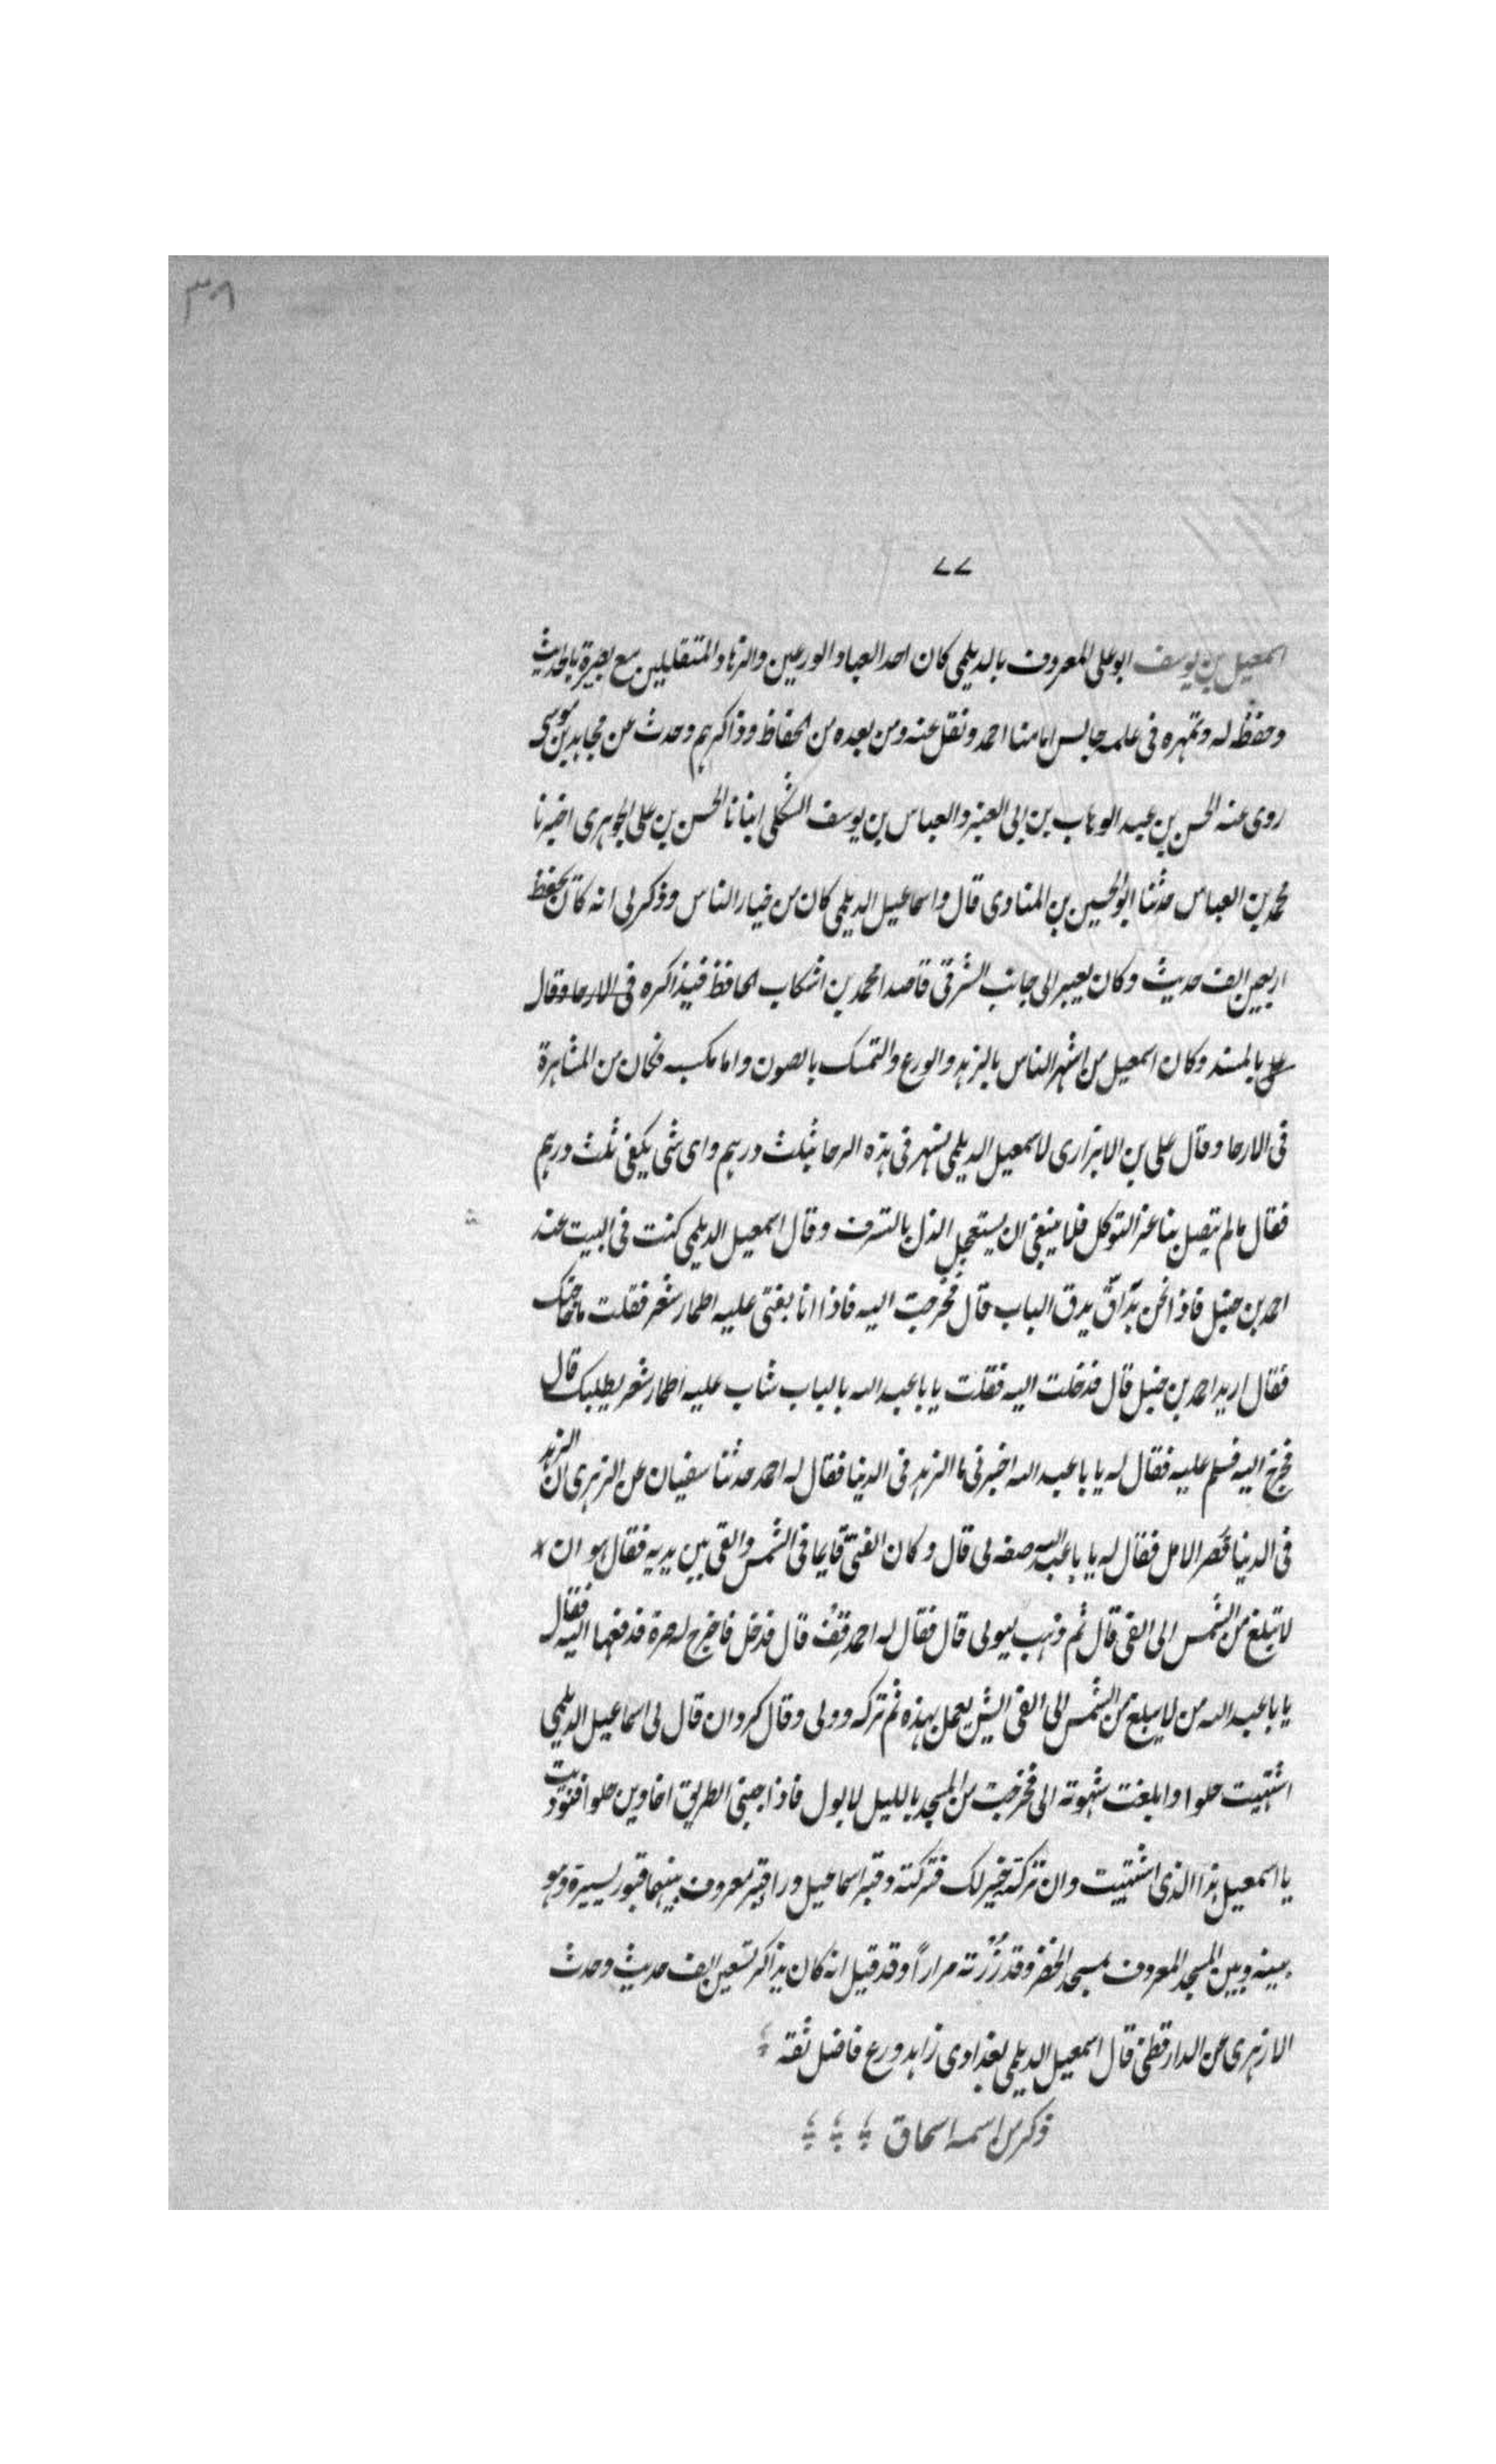 ٣٩
٧٧
اسمعيل بن يوسف ابو على المعروف بالديلمى كان احد العباد الورعين والزهاد المتقللين مع بصيرة بالحديث
وحفظ له وتمهره فى علمه جالس امامنا احمد ونقل عنه ومن بعده من الحفاظ وذاكرهم وحدث عن مجاهد بن موسى
روى عنه الحسن بن عبد الوهاب بن ابى العنبر والعباس بن يوسف الشكلى انبانا الحسن بن على الجوهرى اخبرنا
محمد بن العباس حدثنا ابو الحسين بن المناوى قال واسماعيل الديلمى كان من خيار الناس وذكر لى انه كان يحفظ
اربعين الف حديث وكان يعبر الى جانب الشرقى قاصدا محمد بن اشكاب الحافظ فيذاكره فى الارحا وقال
على بالمسند وكان اسمعيل من اشهر الناس بالزهد والورع والتمسك بالصون واما مكسبه فكان من المشاهرة
فى الارحا وقال على بن الابزارى لاسمعيل الديلمى يسهر فى هذه الرحا بثلث درهم واى شى يكفى ثلث درهم
فقال مالم يتصل بنا عز التوكل فلا ينبغى ان يستعجل الذل بالتسرف وقال اسمعيل الديلمى كنت فى البيت عند
احمد بن حنبل فاذا نحن بداق يدق الباب قال فخرجت اليه فاذا انا بفتى عليه اطمار شعر فقلت ما حاجتك
فقال اريد احمد بن حنبل قال فدخلت اليه فقلت يا با عبد الله بالباب شاب عليه اطمار شعر يطلبك قال
فخرج اليه فسلم عليه فقال له يا با عبد الله اخبرنى ما الزهد فى الدنيا فقال له احمد حدثنا سفيان عن الزهرى ان الزهد
فى الدنيا قصر الامل فقال له يا با عبد الله صفه لى قال وكان الفتى قايما فى الشمس والفى بين يديه فقال هو ان
لا تبلغ من الشمس الى الفى قال ثم ذهب ليولى قال فقال له احمد قف قال فدخل فاخرج له صرة فدفعها اليه فقال
يا با عبد الله من لا يبلغ من الشمس الى الفى ايش يعمل بهذه ثم تركه وولى وقال كردان قال لى اسماعيل الديلمى
اشتهيت حلوا وابلغت شهوته الى فخرجت من المسجد بالليل لابول فاذا جنبتى الطريق اخاوين حلوا فنوديت
يا اسمعيل هذا الذى اشتهيت وان تركته خير لك فتركته وقبر اسماعيل ورا قبر معروف بينهما قبور يسيرة وهو
بينه وبين المسجد المعروف بمسجد الخضر وقد زرته مرارا وقد قيل انه كان يذاكر تسعين الف حديث وحدث
الازهرى عن الدارقطنى قال اسمعيل الديلمى بغدادى زاهد ورع فاضل ثقه
ذكر من اسمه اسحاق